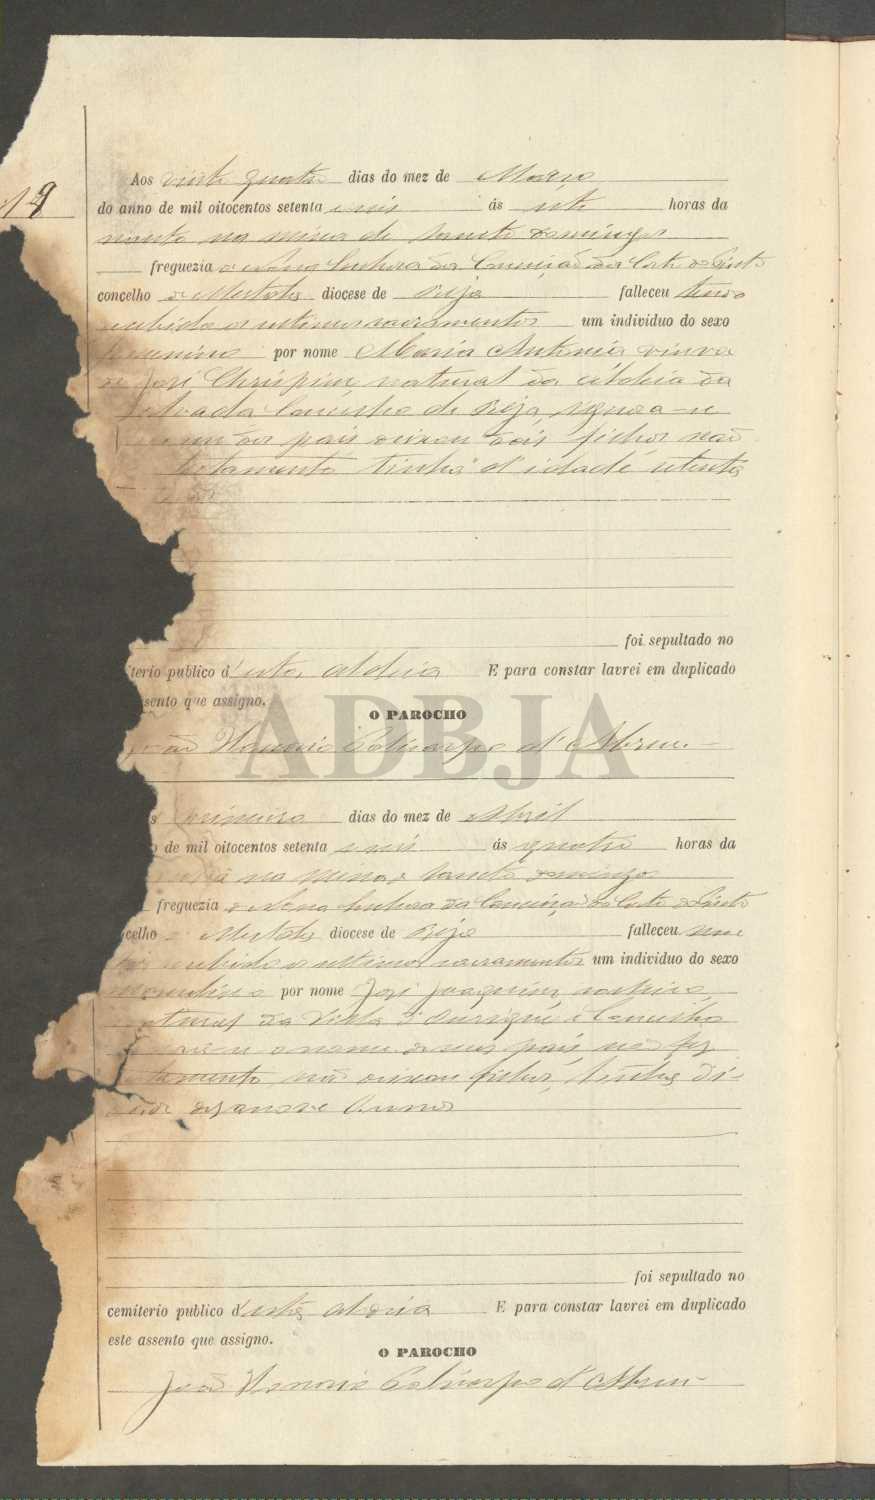 19
Aos vinte quatro dias do mez de Março
do anno de mil oitocentos setenta e seis ás sete horas da
na mina de Sancto Domingos
freguezia de Nossa Senhora da Conceição da Corte do Pinto
concelho de Mertola diocese de Beja falleceu tendo
recebido os ultimos sacramentos um individuo do sexo
feminino por nome Maria Antonia, viuva
de José Chrispim natural da aldeia da
Concelho de Beja, ignora-se
dos pais deixou dois filhos não
testamento tinha d'idade setenta
foi sepultado no
terio publico d'esta aldeia E para constar lavrei em duplicado
sento que assigno.
O PAROCHO
João Honorio Policarpo d'Abreu.
ADBJA
s primeiro dias do mez de Abril
o de mil oitocentos setenta e seis ás quatro horas da
na mina de Sancto Domingos
freguezia de Nossa Senhora da Conceição da Corte do Pinto
celho de Mertola diocese de Beja falleceu sem
recebido os ultimos sacramentos um individuo do sexo
masculino por nome José Joaquim solteiro,
natural da Villa d'Ourique e Concelho
o nome de seus pais não fez
testamento não deixou filhos, tinha d'i-
dade desanove annos
foi sepultado no
cemiterio publico d'esta aldeia E para constar lavrei em duplicado
este assento que assigno.
O PAROCHO
João Honorio Policarpo d'Abreu